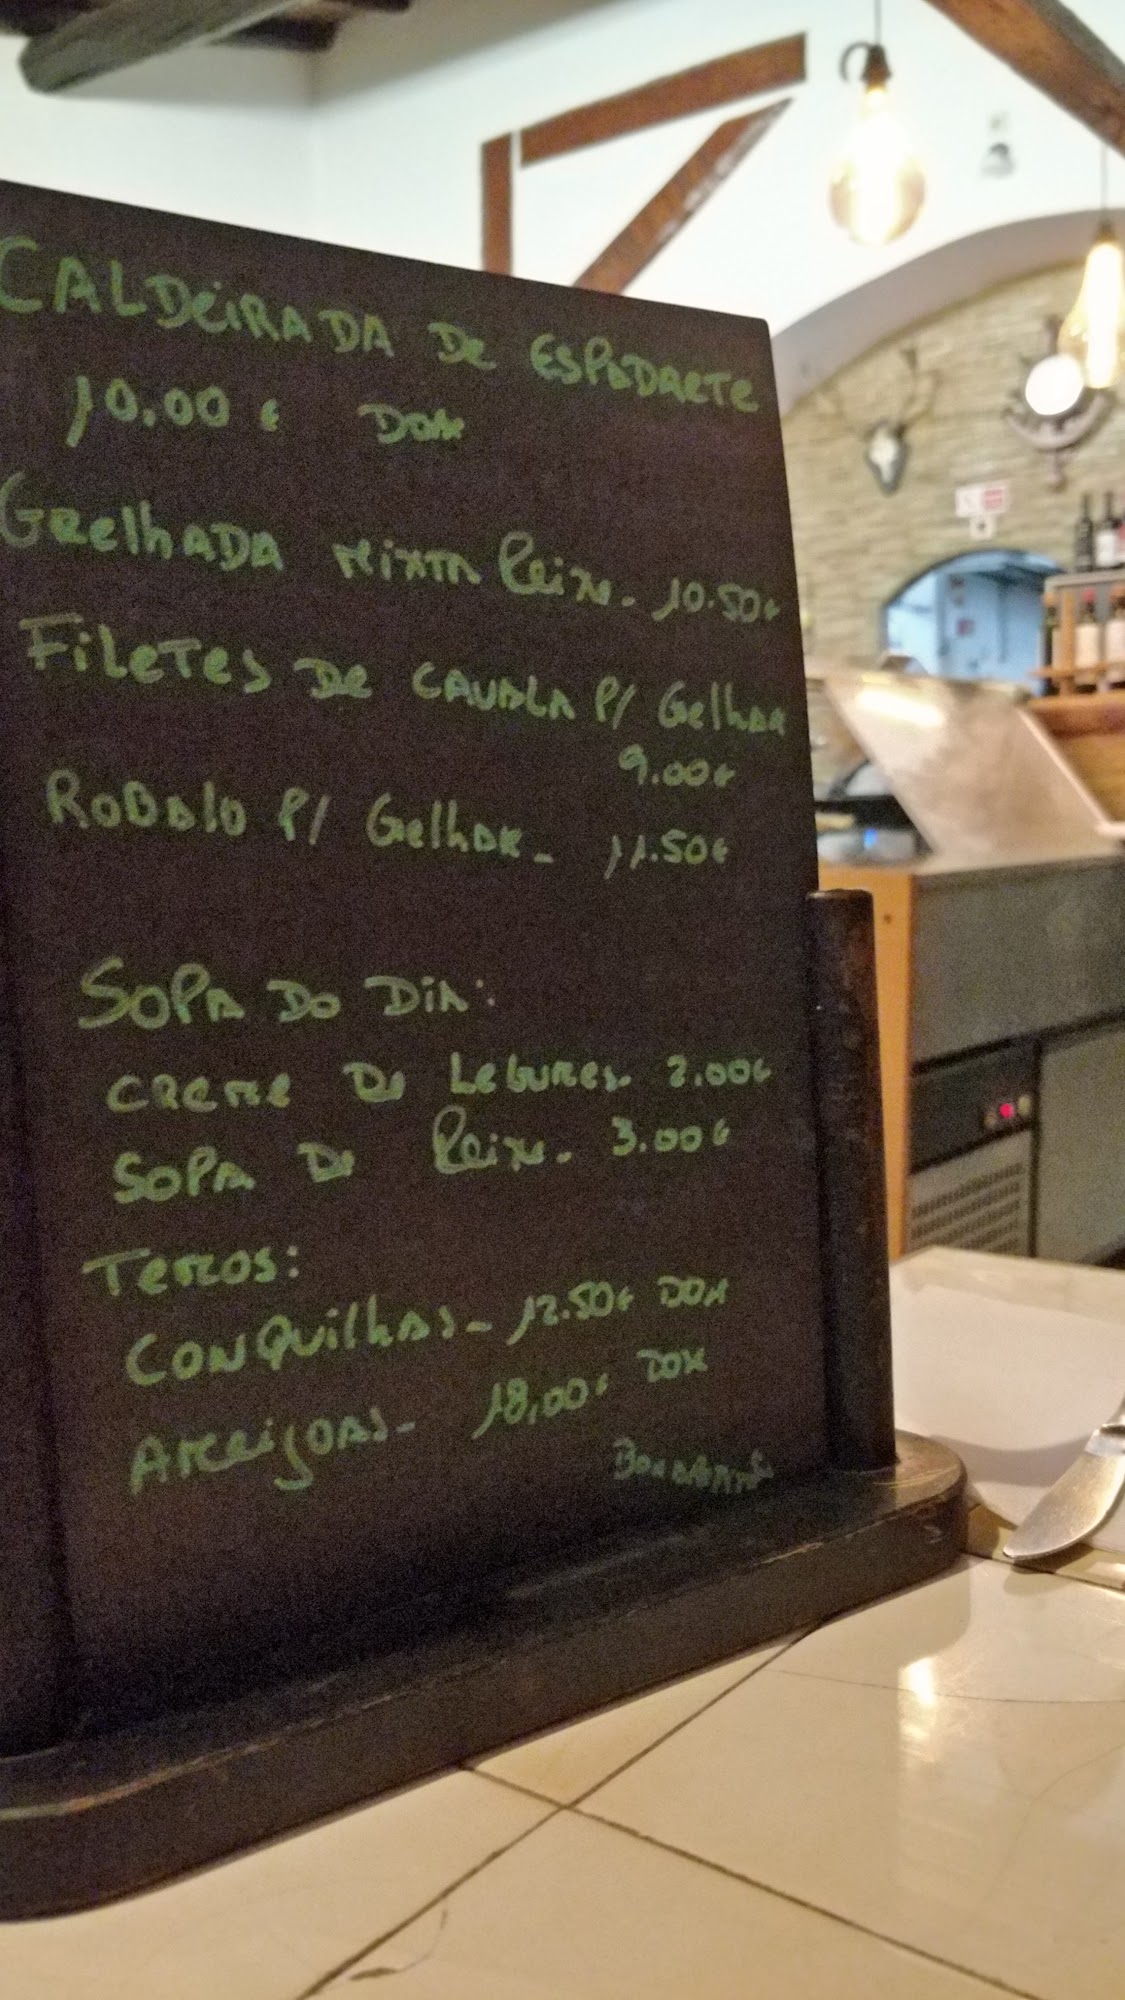 CALDEIRADA DE ESPADARTE
10,00 € DOX
GRELHADA MIXTA PEIXE - 10.50€
FILETES DE CAVALA P/ GELHAR
9.00€
ROBALO P/ GELHAR - 11.50€
SOPA DO DIA:
CREME DE LEGUMES - 2.00€
SOPA DE PEIXE - 3.00€
TEMOS:
CONQUILHAS - 12.50€ DOX
AMEIJOAS - 18,00€ DOX